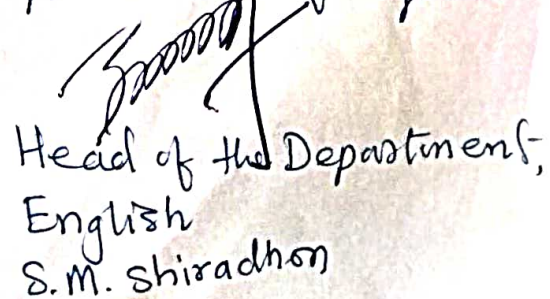 Head of the Department,
English
S.M. Shiradhon